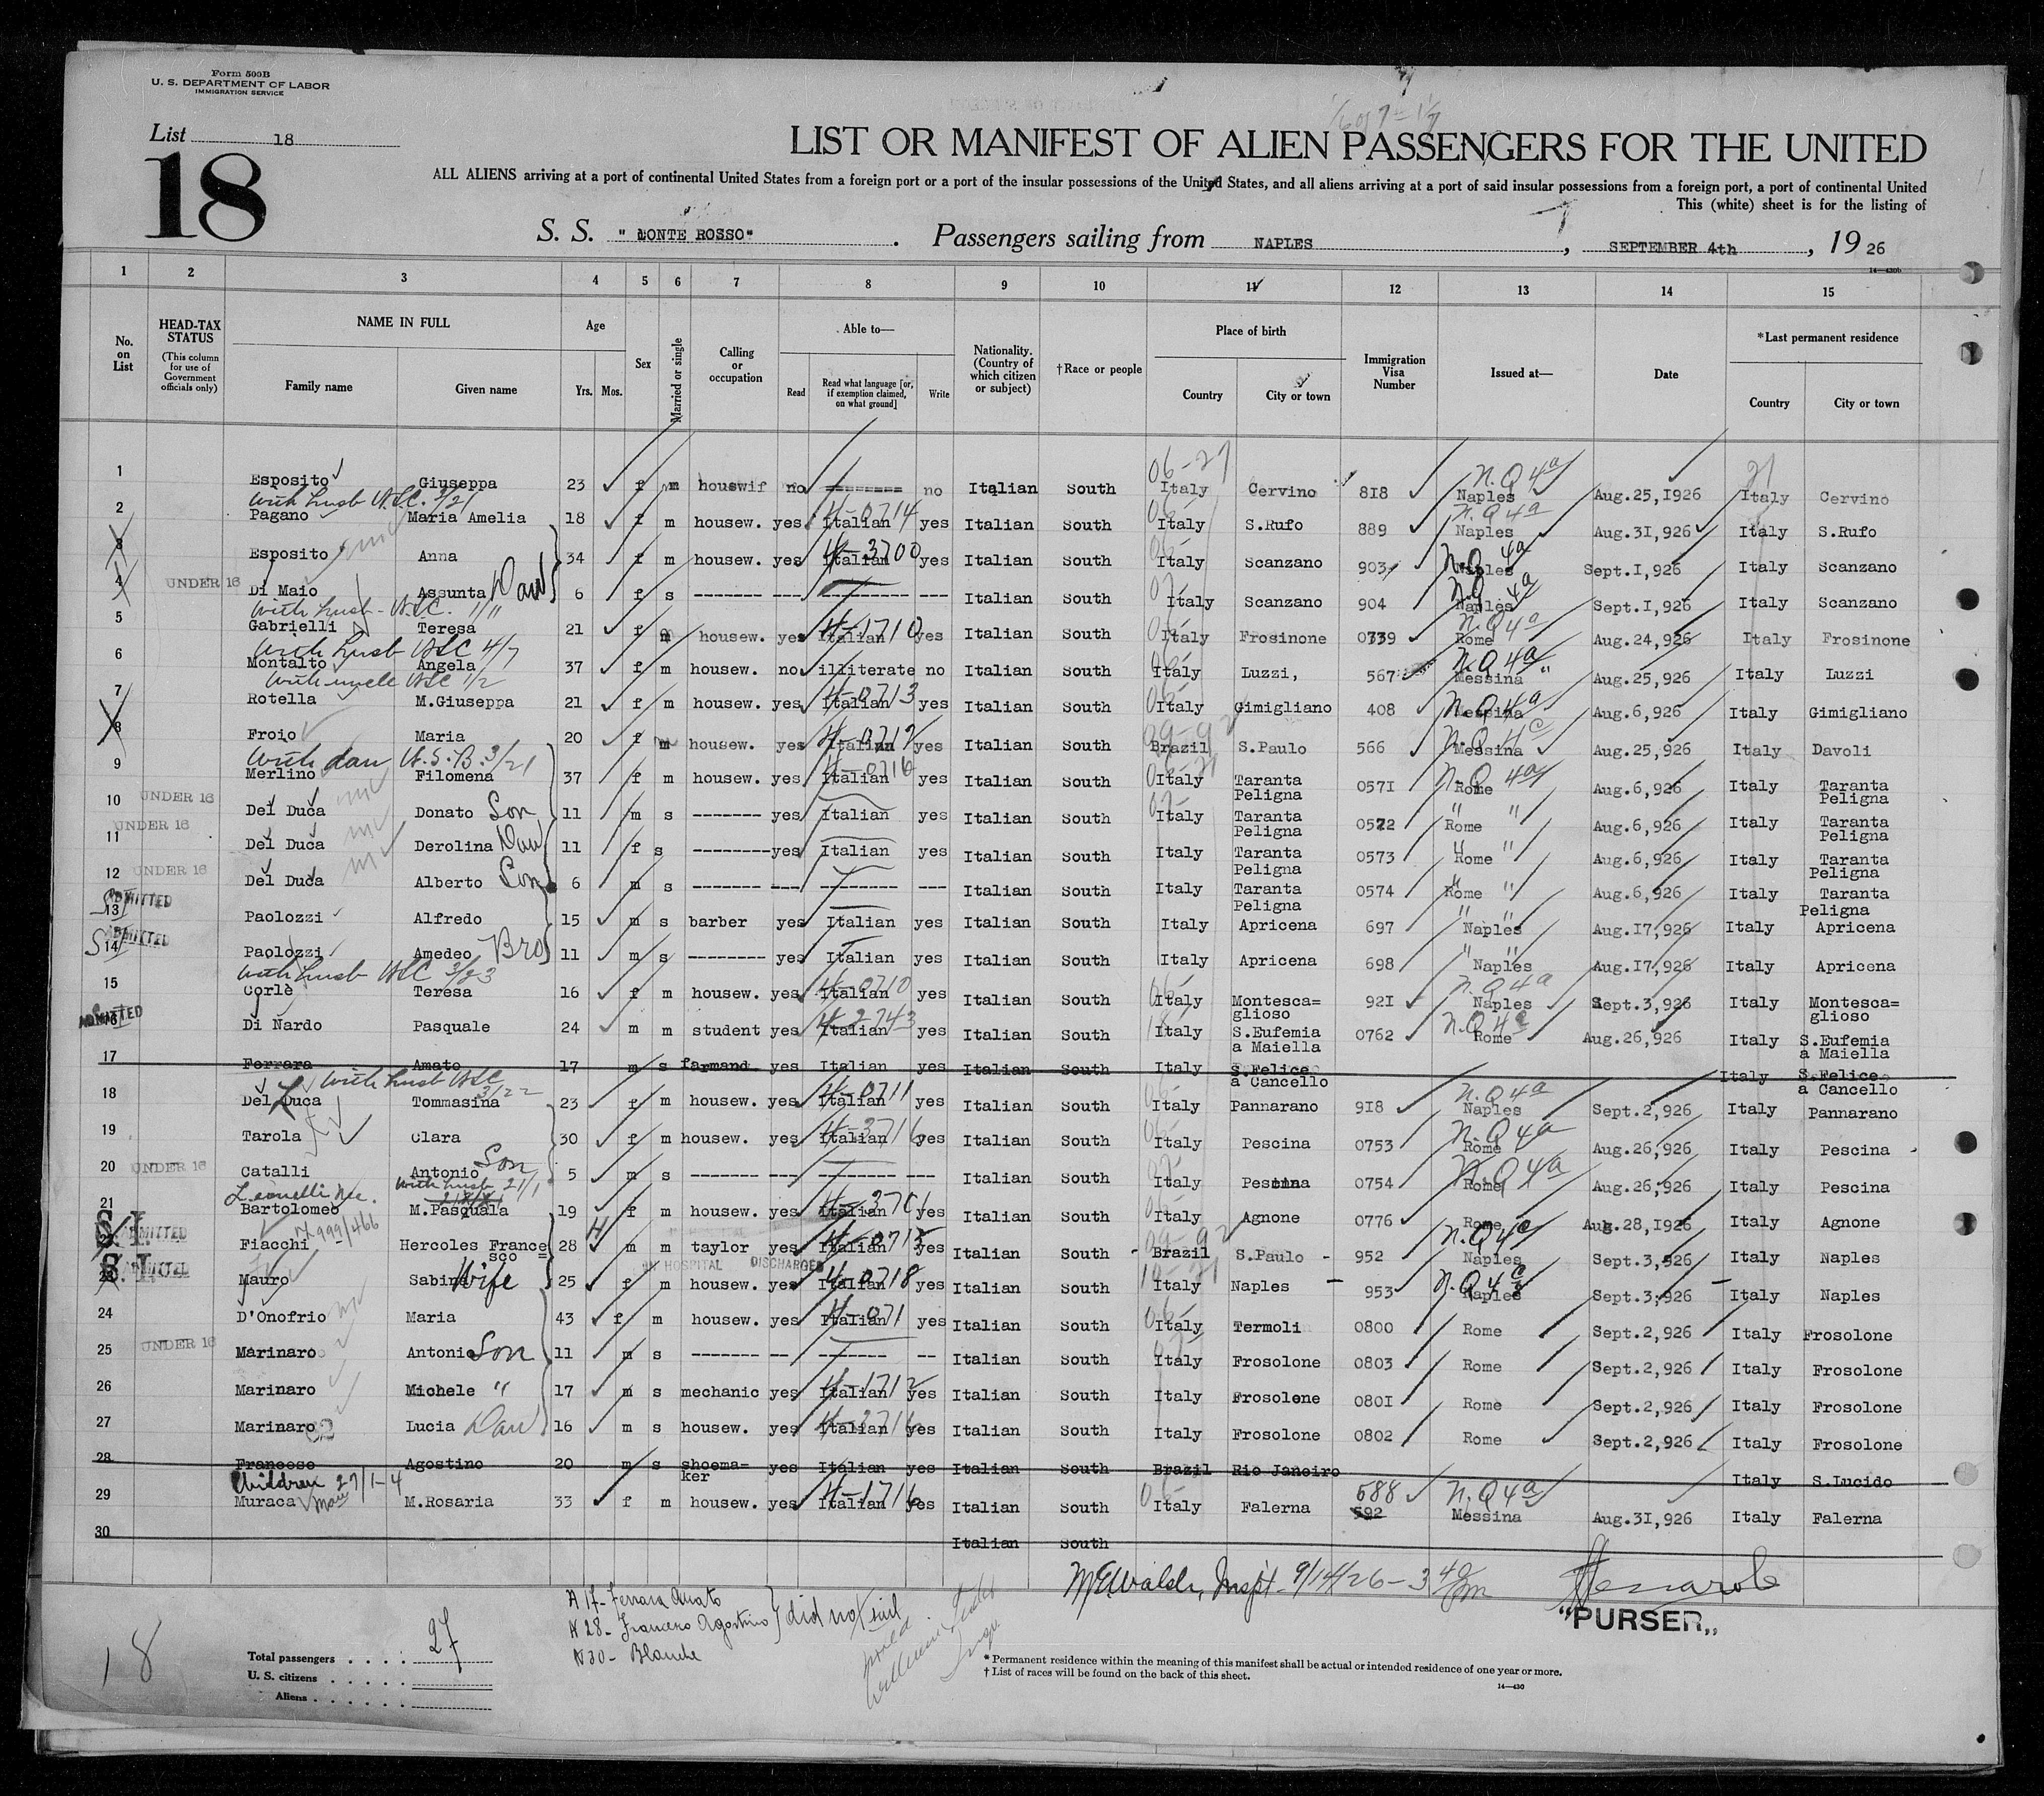 Form 500B
U. S. DEPARTMENT OF LABOR
IMMIGRATION SERVICE
List 18
18
LIST OR MANIFEST OF ALIEN PASSENGERS FOR THE UNITED
ALL ALIENS arriving at a port of continental United States from a foreign port or a port of the insular possessions of the United States, and all aliens arriving at a port of said insular possessions from a foreign port, a port of continental United
This (white) sheet is for the listing of
S. S. "CONTE ROSSO" . Passengers sailing from NAPLES , SEPTEMBER 4th , 19 26
14—430b
1 2 3 4 5 6 7 8 9 10 11 12 13 14 15
No. on List
HEAD-TAX STATUS
(This column for use of Government officials only)
NAME IN FULL
Family name Given name
Age
Yrs. Mos.
Sex
Married or single
Calling or occupation
Able to—
Read Read what language [or, if exemption claimed, on what ground] Write
Nationality. (Country of which citizen or subject)
†Race or people
Place of birth
Country City or town
Immigration Visa Number
Issued at—
Date
*Last permanent residence
Country City or town
1 Esposito Giuseppa 23 f m houswif no ========= no Italian South Italy Cervino 818 N.Q 4a Naples Aug.25,1926 Italy Cervino
With husb 3/21
2 Pagano Maria Amelia 18 f m housew. yes Italian yes Italian South Italy S.Rufo 889 N.Q 4a Naples Aug.31,926 Italy S.Rufo
3 Esposito Anna 34 f m housew. yes Italian yes Italian South Italy Scanzano 903 N.Q 4a Naples Sept.1,926 Italy Scanzano
4 UNDER 16 Di Maio Assunta Dau 6 f s ------- --- --------- --- Italian South Italy Scanzano 904 N.Q 4a Naples Sept.1,926 Italy Scanzano
With husb 1/11
5 Gabrielli Teresa 21 f m housew. yes Italian yes Italian South Italy Frosinone 0739 N.Q 4a Rome Aug.24,926 Italy Frosinone
With husb 4/7
6 Montalto Angela 37 f m housew. no illiterate no Italian South Italy Luzzi, 567 N.Q 4a Messina Aug.25,926 Italy Luzzi
With uncle 1/2
7 Rotella M.Giuseppa 21 f m housew. yes Italian yes Italian South Italy Gimigliano 408 N.Q 4a Messina Aug.6,926 Italy Gimigliano
8 Froio Maria 20 f m housew. yes Italian yes Italian South Brazil S.Paulo 566 N.Q 4c Messina Aug.25,926 Italy Davoli
With dau 3/21
9 Merlino Filomena 37 f m housew. yes Italian yes Italian South Italy Taranta Peligna 0571 N.Q 4a Rome Aug.6,926 Italy Taranta Peligna
10 UNDER 16 Del Duca Donato Son 11 m s ------- yes Italian yes Italian South Italy Taranta Peligna 0572 " Rome " Aug.6,926 Italy Taranta Peligna
11 UNDER 16 Del Duca Derolina Dau 11 f s -------- yes Italian yes Italian South Italy Taranta Peligna 0573 " Rome " Aug.6,926 Italy Taranta Peligna
12 UNDER 16 Del Duca Alberto Son 6 m s ------- --- -------- --- Italian South Italy Taranta Peligna 0574 " Rome " Aug.6,926 Italy Taranta Peligna
13 ADMITTED Paolozzi Alfredo 15 m s barber yes Italian yes Italian South Italy Apricena 697 " Naples " Aug.17,926 Italy Apricena
14 ADMITTED Paolozzi Amedeo Bro 11 m s -------- yes Italian yes Italian South Italy Apricena 698 " Naples " Aug.17,926 Italy Apricena
With husb 3/23
15 Corlè Teresa 16 f m housew. yes Italian yes Italian South Italy Montesca=glioso 921 N.Q 4a Naples Sept.3,926 Italy Montesca=glioso
16 ADMITTED Di Nardo Pasquale 24 m m student yes Italian yes Italian South Italy S.Eufemia a Maiella 0762 N.Q 4a Rome Aug.26,926 Italy S.Eufemia a Maiella
17 Ferrara Amato 17 m s farmand yes Italian yes Italian South Italy S.Felice a Cancello Italy S.Felice a Cancello
With husb 3/22
18 Del Duca Tommasina 23 f m housew. yes Italian yes Italian South Italy Pannarano 918 N.Q 4a Naples Sept.2,926 Italy Pannarano
19 Tarola Clara 30 f m housew. yes Italian yes Italian South Italy Pescina 0753 N.Q 4a Rome Aug.26,926 Italy Pescina
20 UNDER 16 Catalli Antonio Son 5 m s ------- -- -------- --- Italian South Italy Pescina 0754 N.Q 4a Rome Aug.26,926 Italy Pescina
With husb 21/1
21 Bartolomeo M.Pasquala 19 f m housew. yes Italian yes Italian South Italy Agnone 0776 Rome Aug.28,1926 Italy Agnone
S.I. ADMITTED Fiacchi Hercoles France=sco 28 m m taylor yes Italian yes Italian South Brazil S.Paulo 952 N.Q 4c Naples Sept.3,926 Italy Naples
IN HOSPITAL DISCHARGED
S.I. 23 Mauro Sabina Wife 25 f m housew. yes Italian yes Italian South Italy Naples 953 N.Q 4c Naples Sept.3,926 Italy Naples
24 D'Onofrio Maria 43 f m housew. yes Italian yes Italian South Italy Termoli 0800 Rome Sept.2,926 Italy Frosolone
25 UNDER 16 Marinaro Antonio Son 11 m s ------- -- ------- -- Italian South Italy Frosolone 0803 Rome Sept.2,926 Italy Frosolone
26 Marinaro Michele " 17 m s mechanic yes Italian yes Italian South Italy Frosolone 0801 Rome Sept.2,926 Italy Frosolone
27 Marinaro Lucia Dau 16 m s housew. yes Italian yes Italian South Italy Frosolone 0802 Rome Sept.2,926 Italy Frosolone
28 Francese Agostino 20 m s shoema-ker yes Italian yes Italian South Brazil Rio Janeiro Italy S.Lucido
Children 27/1-4
29 Muraca M.Rosaria 33 f m housew. yes Italian yes Italian South Italy Falerna 688 592 N.Q 4a Messina Aug.31,926 Italy Falerna
30 Italian South
N 17- Ferrara Amato
N 28- Francese Agostino } did not sail
N 30- Blanche
McWalsh, Inspt. 9/14/26-3 40 pm
"PURSER"
18
Total passengers . . . . 27
U. S. citizens . . . . .
Aliens . . . . . .
* Permanent residence within the meaning of this manifest shall be actual or intended residence of one year or more.
† List of races will be found on the back of this sheet.
14—430